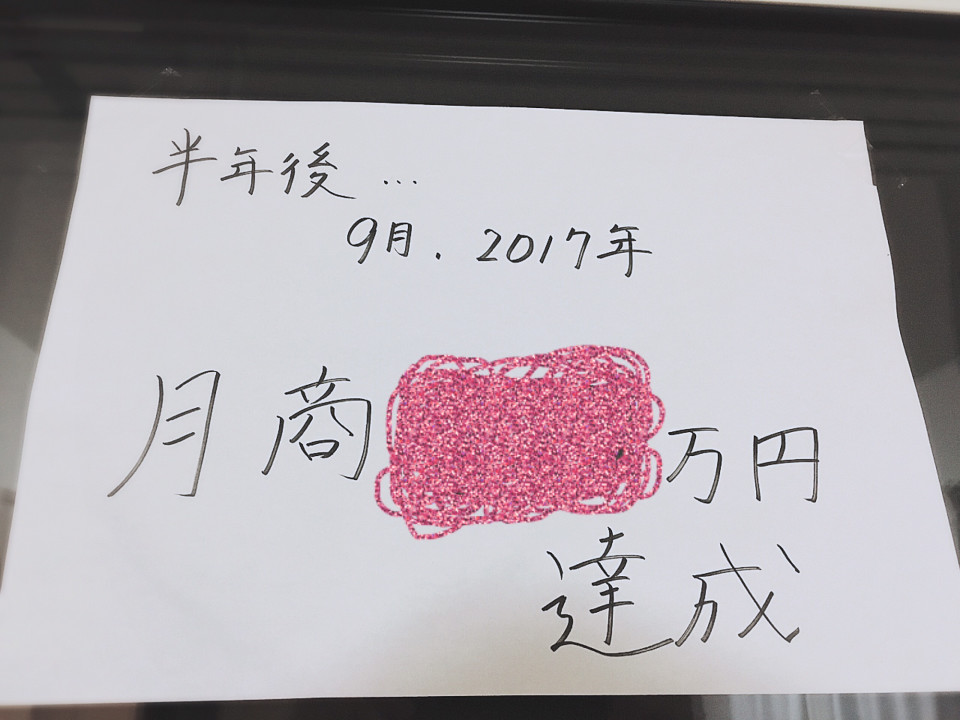 半年後...
9月. 2017年
月商 万円
達成